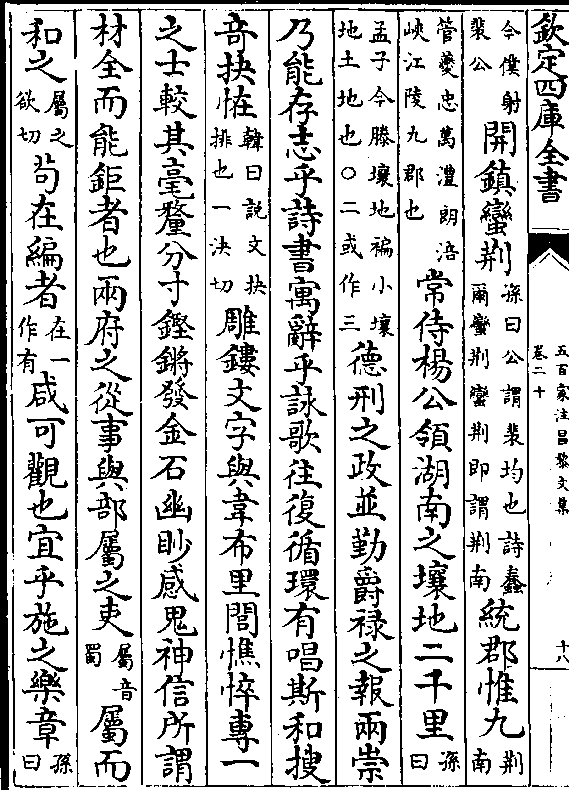 欽定四庫全書
五百家注昌黎文集
卷二十
十八
今僕射裴公開鎮蠻荆孫曰公謂裴均也詩蠢爾蠻荆蠻荆即謂荆南統郡惟九荆南
管夔忠萬澧朗涪峽江陵九郡也常侍楊公領湖南之壤地二千里孫曰
孟子今滕壤地褊小壤地土地也○二或作三德刑之政並勤爵禄之報兩崇
乃能存志乎詩書寓辭乎詠歌往復循環有唱斯和搜
奇抉怪韓曰説文抉挑也一决切雕鏤文字與韋布里閭憔悴專一
之士較其毫釐分寸鏗鏘發金石幽眇感鬼神信所謂
材全而能鉅者也兩府之從事與部屬之吏屬音蜀屬而
和之屬之欲切茍在編者在一作有咸可觀也宜乎施之樂章孫曰